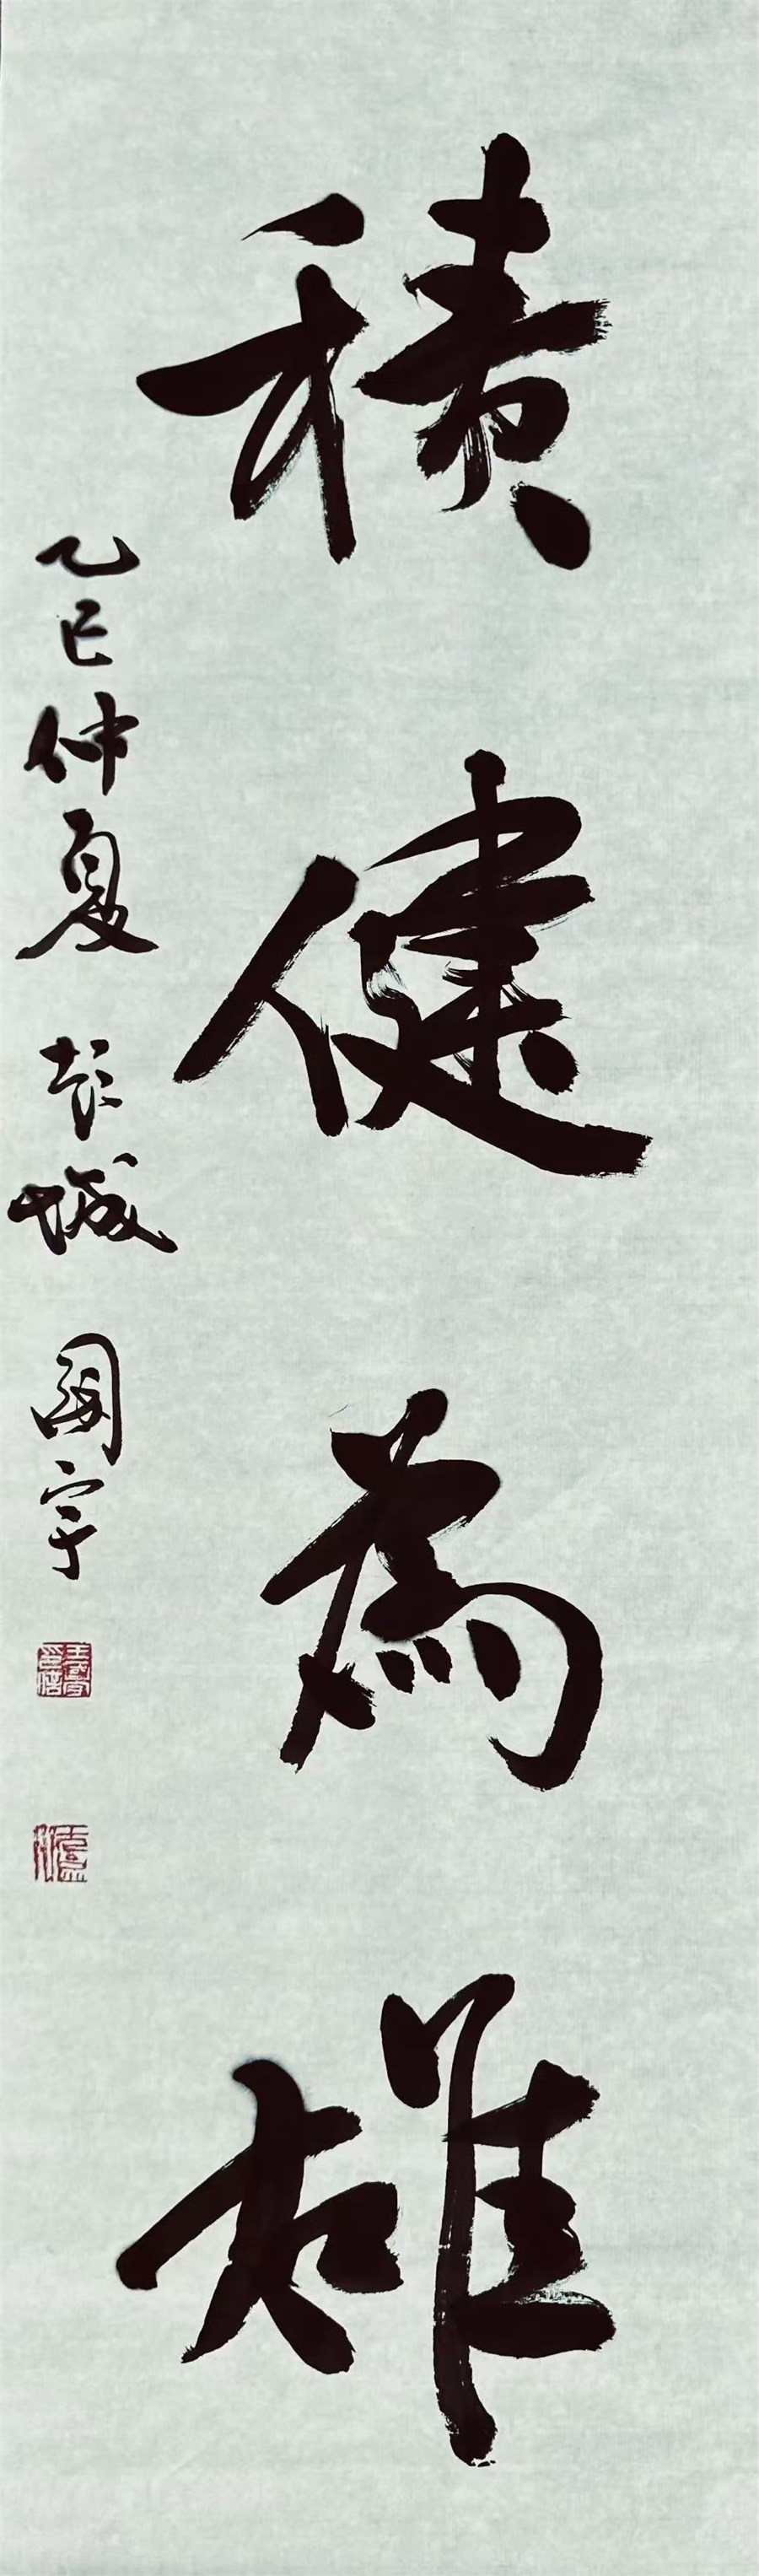 積健為雄
乙巳仲夏 彭城 國宇